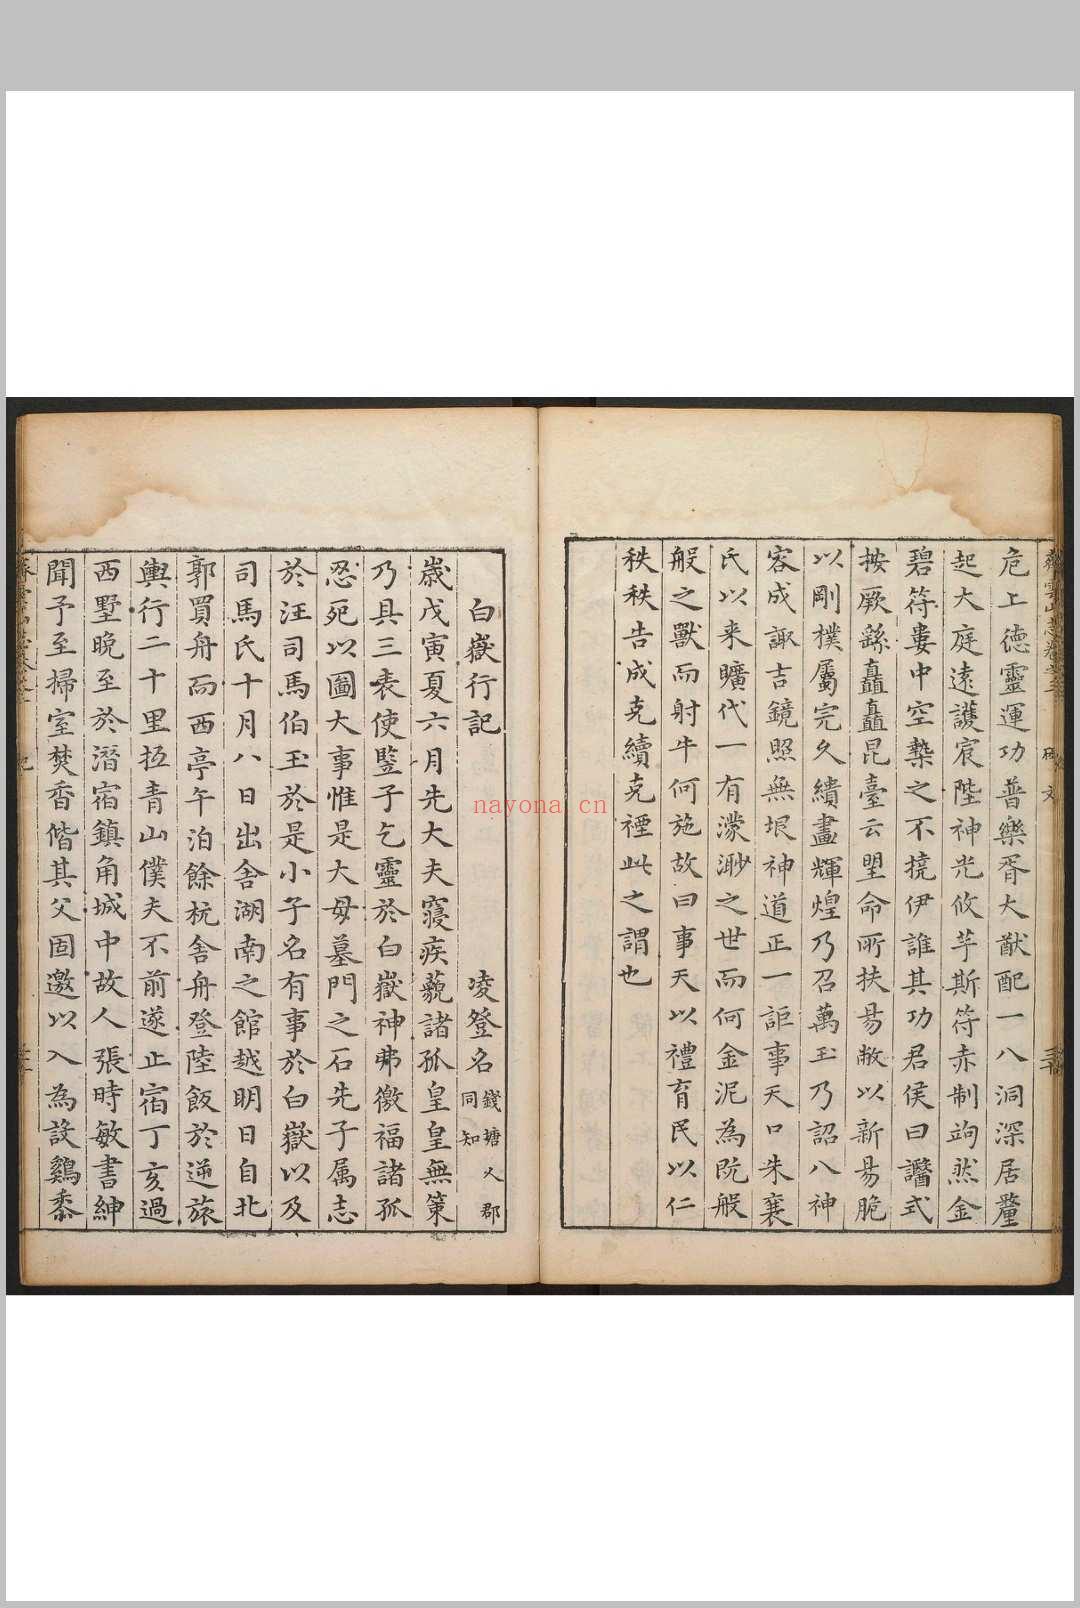 危上德靈運功普樂胥大猷配一八洞深居釐
起大庭遠護宸陛神光攸芋斯符赤制竘然金
碧符婁中空槷之不撓伊誰其功君侯曰譖式
按厥繇矗矗昆臺云朢命所扶昜敝以新昜脆
以剛樸屬完久繢畫輝煌乃召萬玉乃詔八神
容成諏吉鏡照無垠神道正一詎事天口朱襄
氏以来曠代一有濛渺之世而何金泥為阮般
般之獸而射牛何施故曰事天以禮育民以仁
秩秩告成克續克禋此之謂也
白嶽行記
凌登名 錢塘人 郡同知
歲戊寅夏六月先大夫寢疾藐諸孤皇皇無策
乃具三表使豎子乞靈於白嶽神弗徼福諸孤
忍死以圖大事惟是大母墓門之石先子属志
於汪司馬伯玉於是小子名有事於白嶽以及
司馬氏十月八日出舍湖南之館越明日自北
郭買舟而西亭午泊餘杭舍舟登陸飯於逆旅
輿行二十里抵青山僕夫不前遂止宿丁亥過
西墅晚至於潛宿鎮角城中故人張時敏書紳
聞予至掃室焚香偕其父固邀以入為設鷄黍
nayona.cn